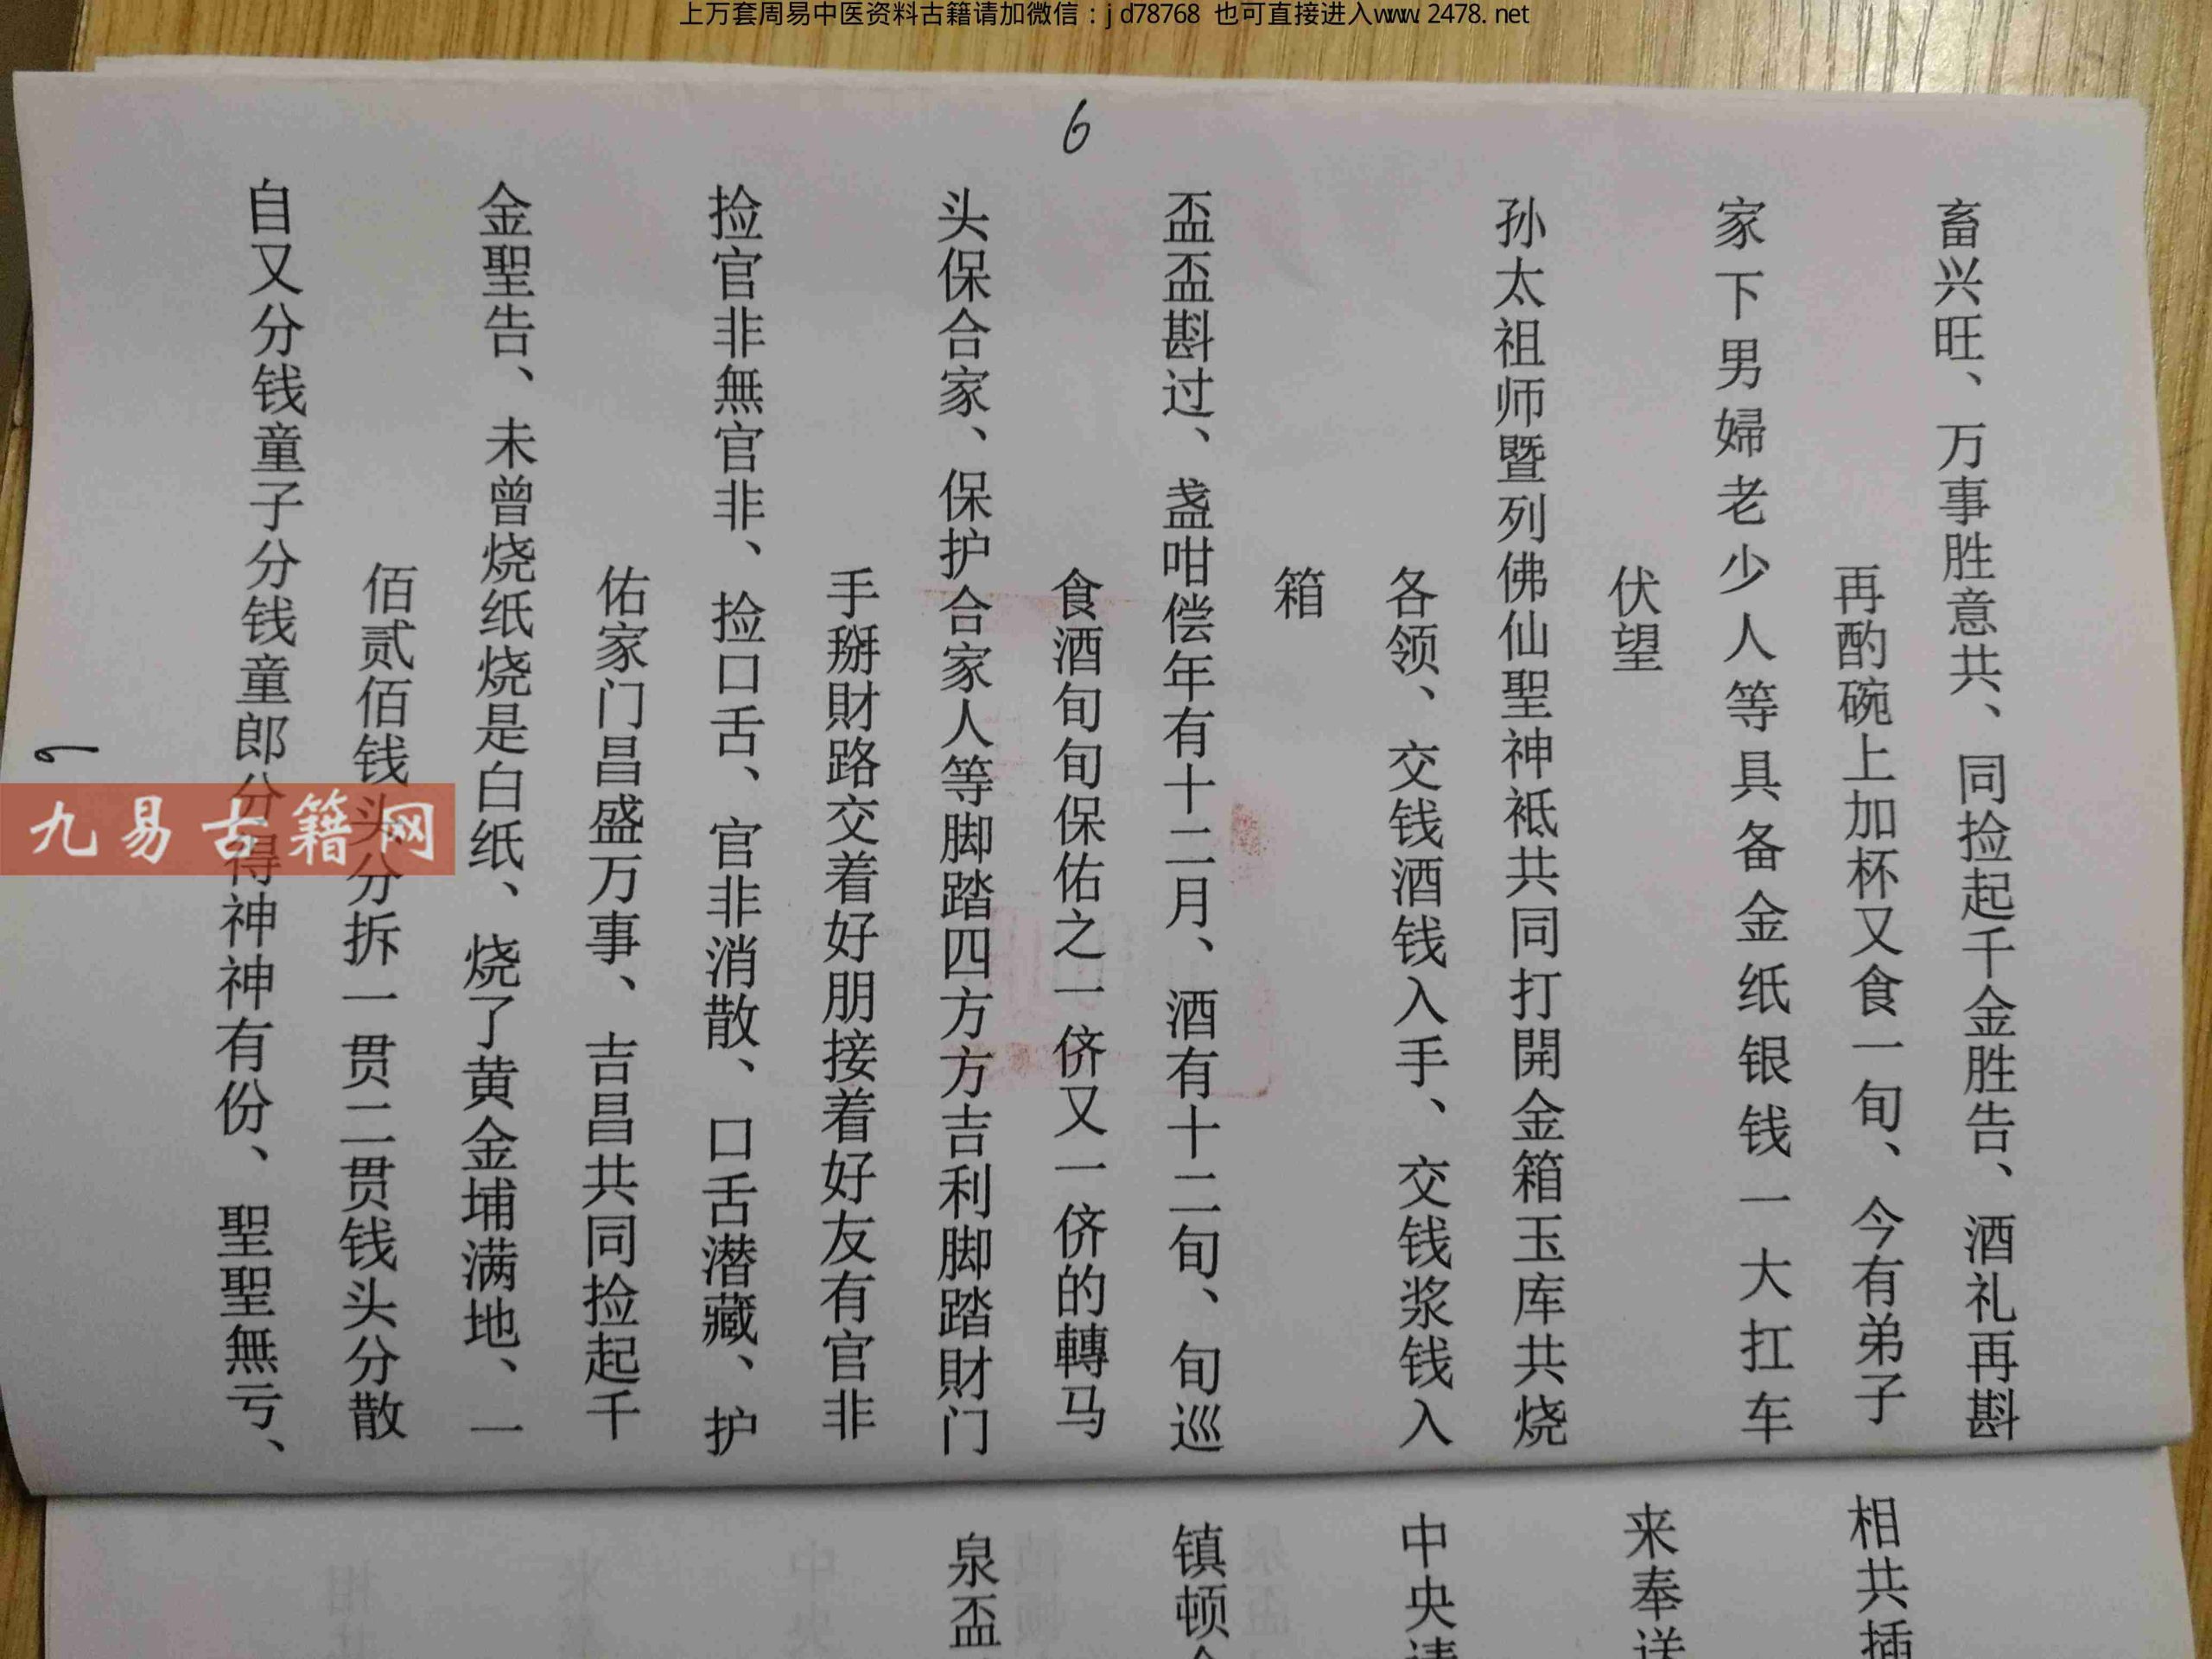 上万套周易中医资料古籍请加微信：jd78768 也可直接进入www.2478.net
6
畜兴旺、万事胜意共、同捡起千金胜告、酒礼再斟
再酌碗上加杯又食一旬、今有弟子
家下男婦老少人等具备金纸银钱一大扛车
伏望
孙太祖师暨列佛仙聖神袛共同打開金箱玉库共烧
各领、交钱酒钱入手、交钱浆钱入
箱
盃盃斟过、盏咁偿年有十二月、酒有十二旬、旬巡
食酒旬旬保佑之一侪又一侪的轉马
头保合家、保护合家人等脚踏四方方吉利脚踏財门
手掰財路交着好朋接着好友有官非
捡官非無官非、捡口舌、官非消散、口舌潜藏、护
佑家门昌盛万事、吉昌共同捡起千
金聖告、未曾烧纸烧是白纸、烧了黄金埔满地、一
佰贰佰钱头分拆一贯二贯钱头分散
自又分钱童子分钱童郎分得神神有份、聖聖無亏、
九易古籍网
相共插
来奉送
中央请
镇顿
泉盃